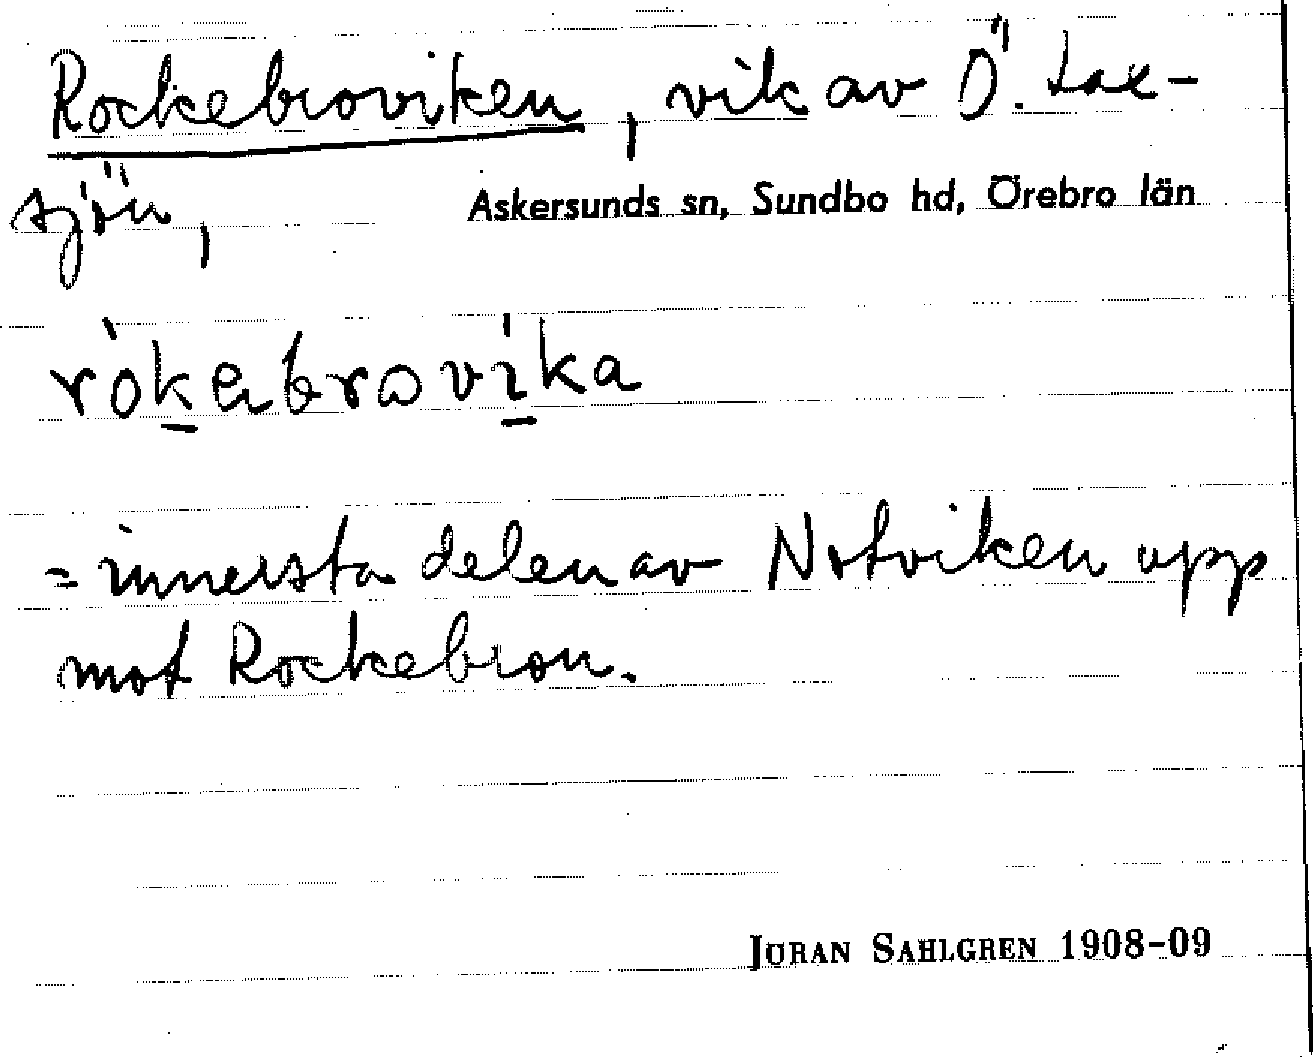 Rockebroviken, vik av Ö. Lax-
sjön,
Askersunds sn, Sundbo hd, Örebro län
= innersta delen av Notviken upp
mot Rockebron.
JÖRAN SAHLGREN 1908-09